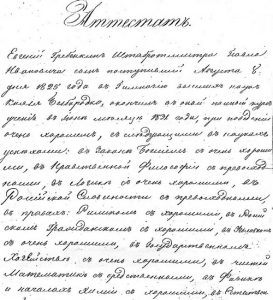 Аттестатъ.
Евгеній Гребенкинъ Штабротмистра Павла
Ивановича сынъ поступившій Августа 8.
дня 1825 года въ Гимназію высшихъ наукъ
Князя Безбородко, окончилъ въ оной полный курсъ
ученія въ Іюнѣ мѣсяцѣ 1831 года, при поведеніи
очень хорошемъ, съ слѣдующими въ наукахъ
успѣхами: въ Законѣ Божіемъ съ очень хороши-
ми, въ Нравственной Философіи съ превосход-
ными, въ Логикѣ съ очень хорошими, въ
Россійской Словесности съ превосходными,
въ правахъ: Римскомъ съ хорошими, въ Россій-
скомъ Гражданскомъ съ хорошими, въ
съ очень хорошими, въ Государственномъ
Хозяйствѣ съ очень хорошими, въ чистой
Математикѣ съ средственными, въ Физикѣ
и началахъ Химіи съ хорошими, въ